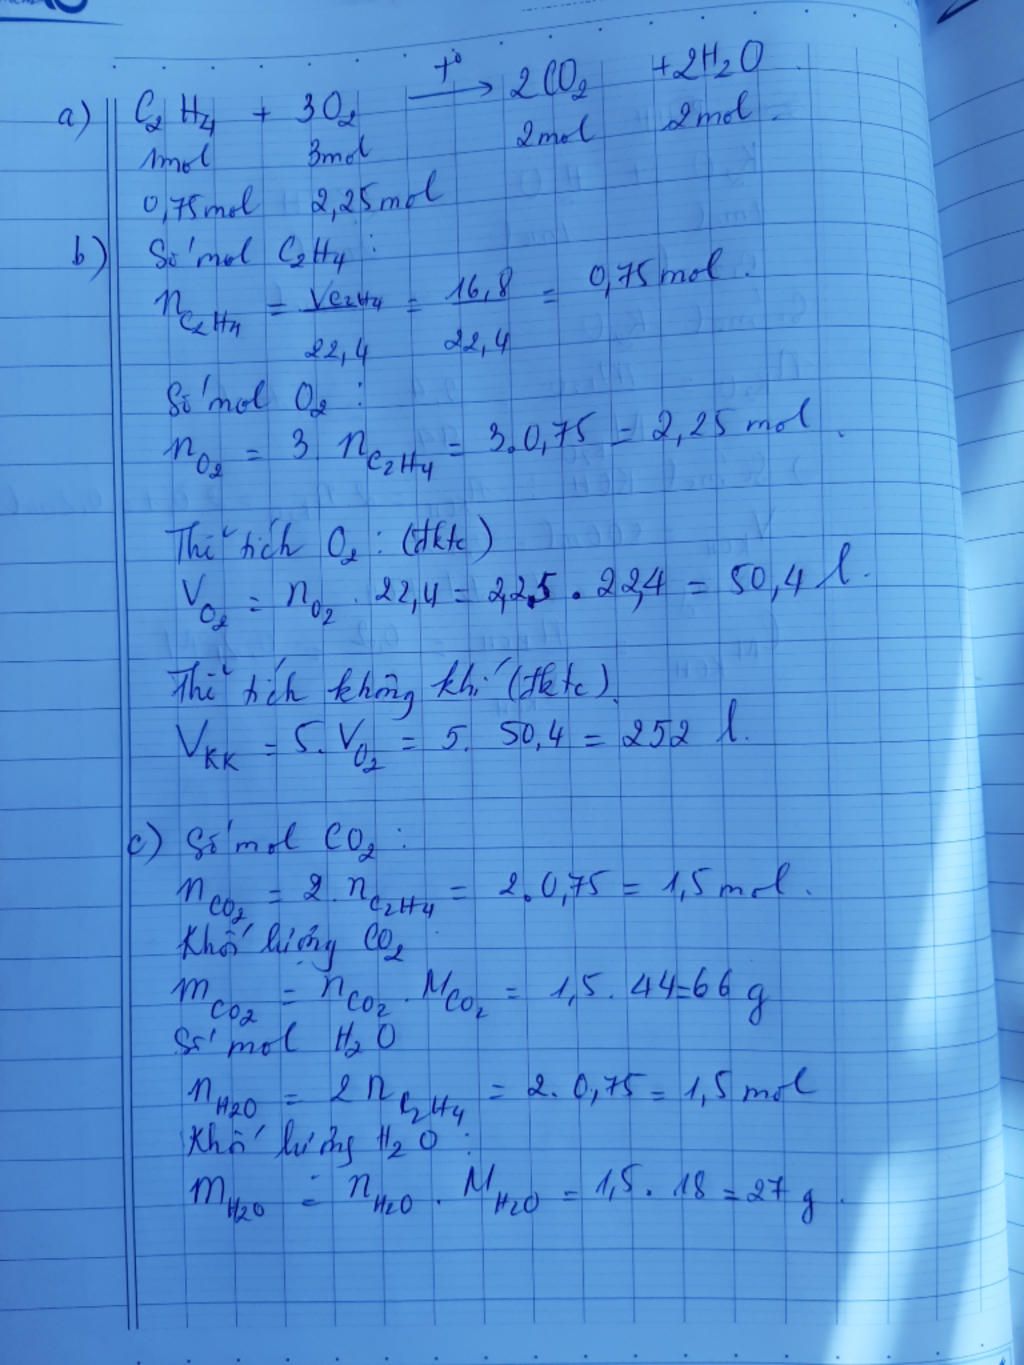 a) C₂H₄ + 3O₂ —t°→ 2CO₂ + 2H₂O
1mol 3mol 2mol 2mol.
0,75mol 2,25mol
b) Số mol C₂H₄ :
n_C₂H₄ = V_C₂H₄/22,4 = 16,8/22,4 = 0,75 mol.
Số mol O₂ :
n_O₂ = 3 n_C₂H₄ = 3.0,75 = 2,25 mol.
Thể tích O₂ : (đktc)
V_O₂ = n_O₂ . 22,4 = 2,25 . 22,4 = 50,4 l.
Thể tích không khí (đktc)
V_KK = 5. V_O₂ = 5. 50,4 = 252 l.
c) Số mol CO₂ :
n_CO₂ = 2. n_C₂H₄ = 2.0,75 = 1,5 mol.
Khối lượng CO₂
m_CO₂ = n_CO₂ . M_CO₂ = 1,5. 44=66 g
Số mol H₂O
n_H₂O = 2 n_C₂H₄ = 2. 0,75 = 1,5 mol
Khối lượng H₂O :
m_H₂O = n_H₂O . M_H₂O = 1,5. 18 = 27 g.